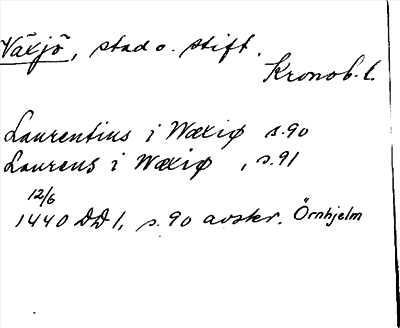 Växjö, stad o. stift.
Kronob. l.
Laurentius i Wæxiø s. 90
Laurens i Wæxiø, s. 91
12/6
1440 DD 1, s. 90 avskr. Örnhjelm